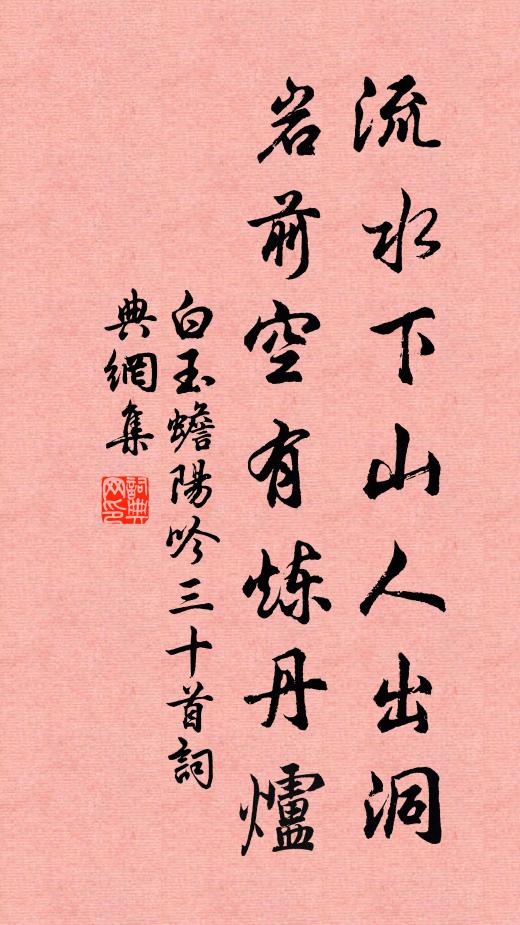 流水下山人出洞
岩前空有炼丹爐
白玉蟾陽吟三十首詞
典網集
詞典网印